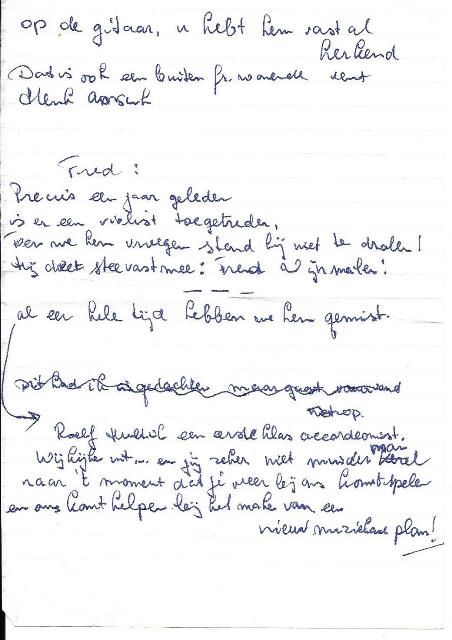 op de gitaar, u hebt hem vast al
herkend
Dat is ook een buiten fr. wonende vent
Henk
Fred:
Precies een jaar geleden
is er een violist toegetreden,
Toen we hem vroegen stond hij niet te dralen!
Hij doet steevast mee: Fred Wijnmalen!
al een hele tijd hebben we hem gemist.
Dit had ik gedachten maar
Roelf een eerste klas accordeonist.
Wij kijken uit... en jij zeker niet minder man
naar 't moment dat je weer bij ons komt spelen
en ons komt helpen bij het maken van een
nieuw muzikaal plan!